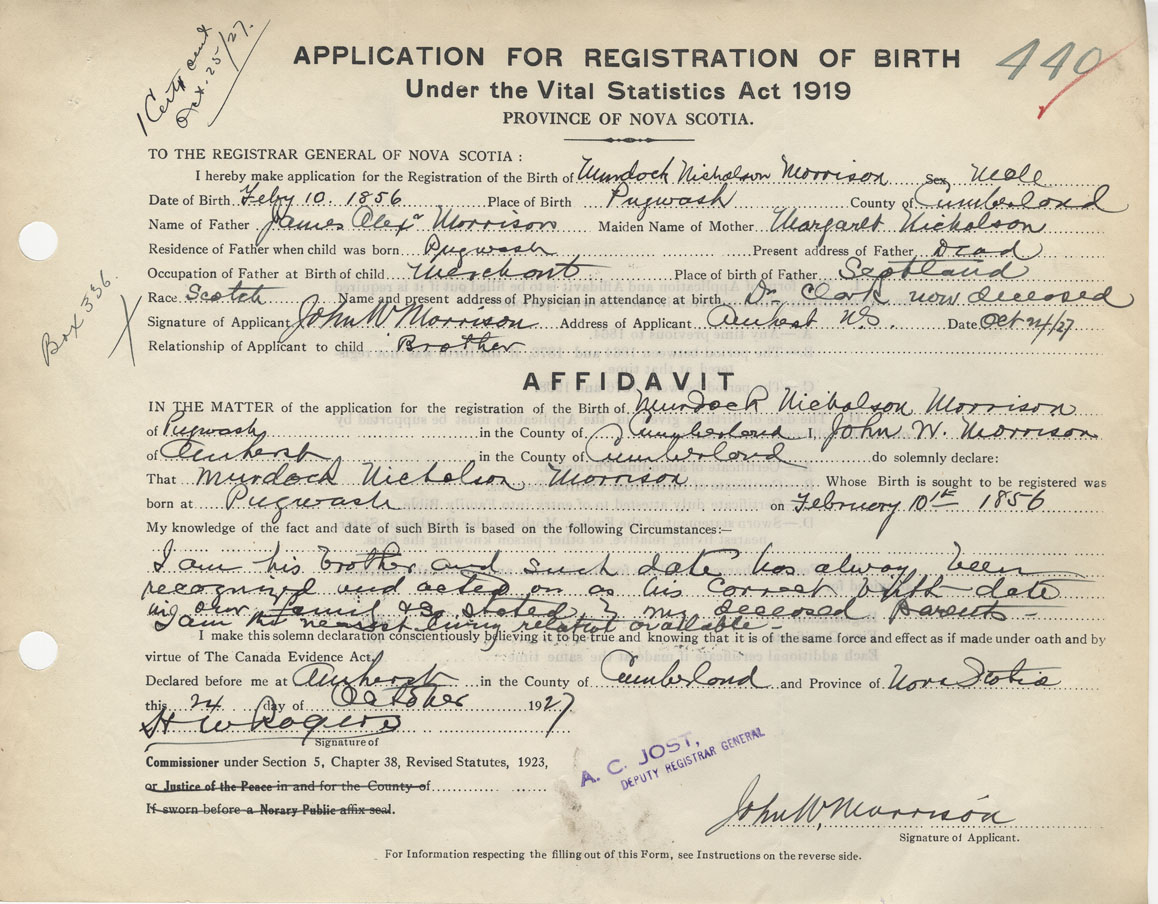 1 Certf sent
Oct. 25/27.
440
APPLICATION FOR REGISTRATION OF BIRTH
Under the Vital Statistics Act 1919
PROVINCE OF NOVA SCOTIA.
TO THE REGISTRAR GENERAL OF NOVA SCOTIA :
I hereby make application for the Registration of the Birth of Murdock Nicholson Morrison Sex Male
Date of Birth Feby 10. 1856 Place of Birth Pugwash County of Cumberland
Name of Father James Alexr Morrison Maiden Name of Mother Margaret Nicholson
Residence of Father when child was born Pugwash Present address of Father Dead
Occupation of Father at Birth of child Merchant Place of birth of Father Scotland
Race Scotch Name and present address of Physician in attendance at birth Dr. Clark now deceased
Signature of Applicant John W Morrison Address of Applicant Amherst N.S. Date Oct 24/27
Relationship of Applicant to child Brother
Box 336.
AFFIDAVIT
IN THE MATTER of the application for the registration of the Birth of Murdock Nicholson Morrison
of Pugwash in the County of Cumberland I, John W. Morrison
of Amherst in the County of Cumberland do solemnly declare:
That Murdock Nicholson Morrison Whose Birth is sought to be registered was
born at Pugwash on February 10th 1856
My knowledge of the fact and date of such Birth is based on the following Circumstances:—
I am his brother and such date has always been
recognized and acted on as his correct birth date
in our family & so stated by my deceased parents—
I am the nearest living relative available—
I make this solemn declaration conscientiously believing it to be true and knowing that it is of the same force and effect as if made under oath and by
virtue of The Canada Evidence Act.
Declared before me at Amherst in the County of Cumberland and Province of Nova Scotia
this 24 day of October 1927
H W Rogers
Signature of
Commissioner under Section 5, Chapter 38, Revised Statutes, 1923,
or Justice of the Peace in and for the County of
If sworn before a Norary Public affix seal.
A. C. JOST,
DEPUTY REGISTRAR GENERAL
John W. Morrison
Signature of Applicant.
For Information respecting the filling out of this Form, see Instructions on the reverse side.